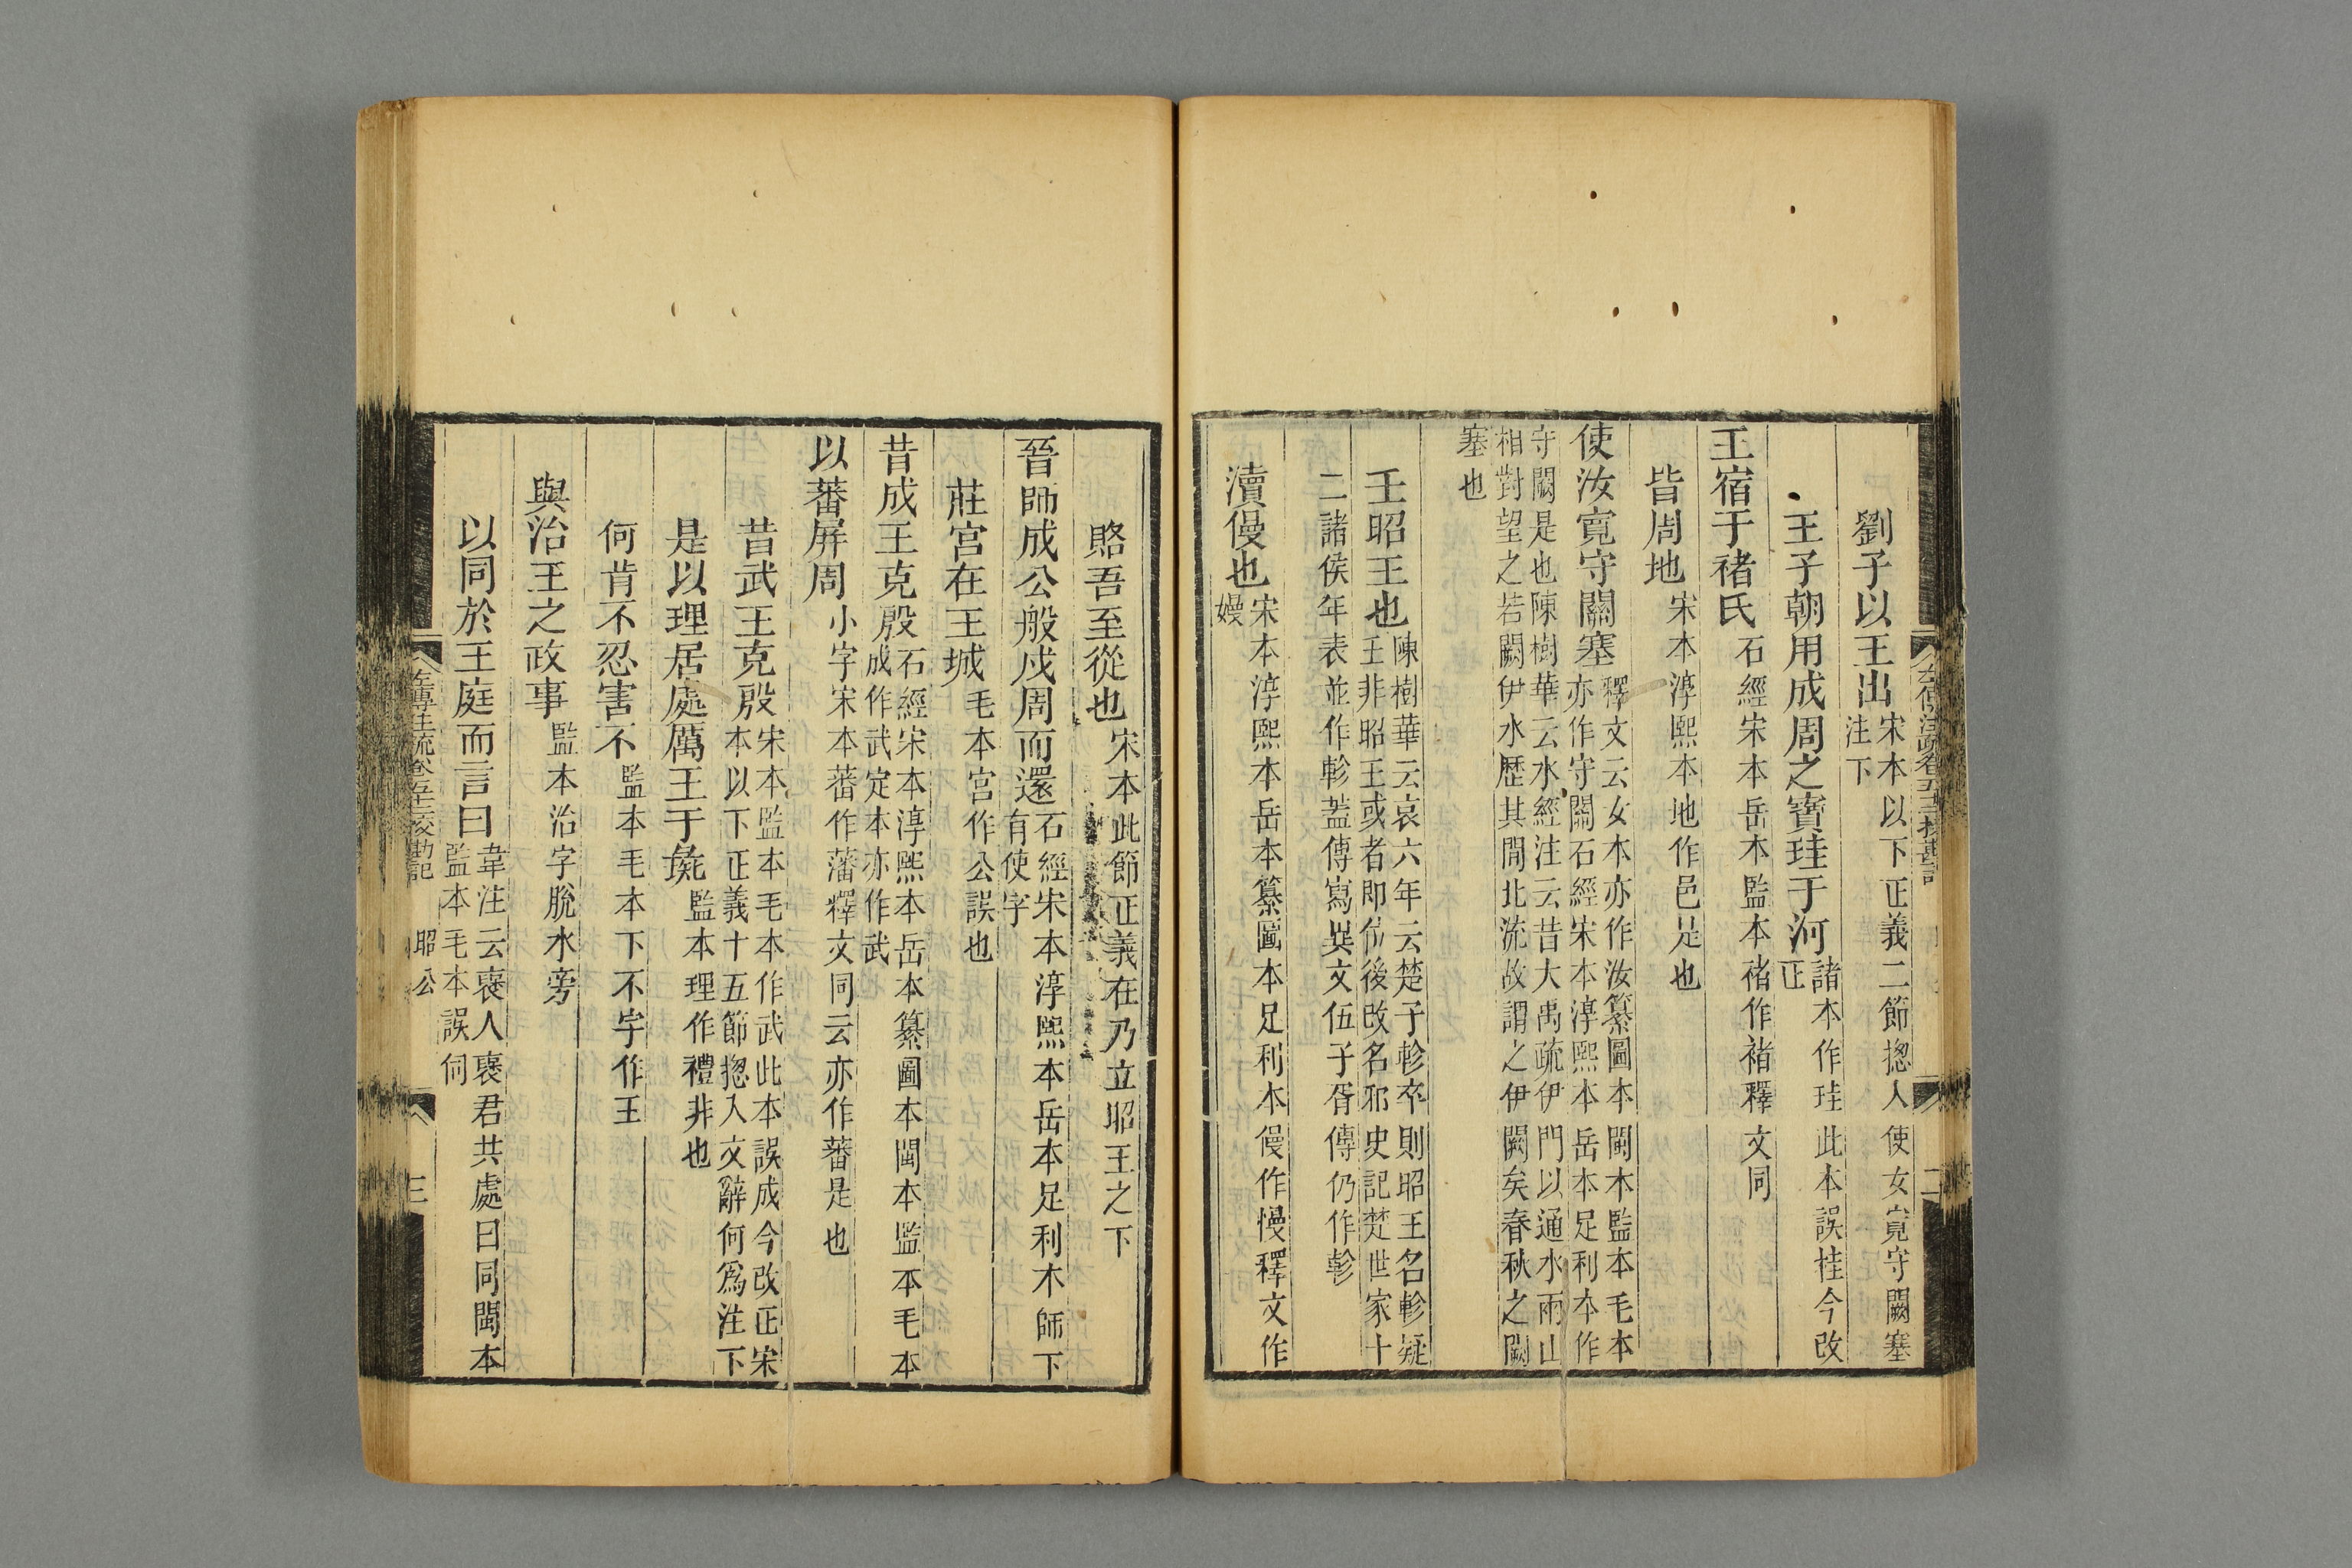 左傳注疏卷五十二挍勘記
二
劉子以王出宋本以下正義二節揔入使女寛守闕塞
注下
王子朝用成周之寳珪于河諸本作珪此本誤桂今改
正
王宿于褚氏石經宋本岳本監本褚作禇釋文同
皆周地宋本淳熙本地作邑是也
使汝寛守關塞釋文云女本亦作汝纂圖本閩本監本毛本
亦作守關石經宋本淳熙本岳本足利本作
守闕是也陳樹華云水經注云昔大禹疏伊門以通水兩山
相對望之若闕伊水歷其閒北流故謂之伊闕矣春秋之闕
塞也
壬昭王也陳樹華云哀六年云楚子軫卒則昭王名軫疑
壬非昭王或者即位後改名邪史記楚世家十
二諸侯年表並作軫蓋傳寫異文伍子胥傳仍作軫
瀆僈也宋本淳熙本岳本纂圖本足利本僈作慢釋文作
嫚
賂吾至從也宋本此節正義在乃立昭王之下
晉師成公般戍周而還石經宋本淳熙本岳本足利本師下
有使字
莊宮在王城毛本宮作公誤也
昔成王克殷石經宋本淳熙本岳本纂圖本閩本監本毛本
成作武定本亦作武
以蕃屏周小字宋本蕃作藩釋文同云亦作蕃是也
昔武王克殷宋本監本毛本作武此本誤成今改正宋
本以下正義十五節揔入文辭何爲注下
是以理居處厲王于彘監本理作禮非也
何肯不忍害不監本毛本下不字作王
與治王之政事監本治字脫水旁
以同於王庭而言曰韋注云襃人襃君共處曰同閩本
監本毛本誤伺
左傳注疏卷五十二挍勘記
昭公
三